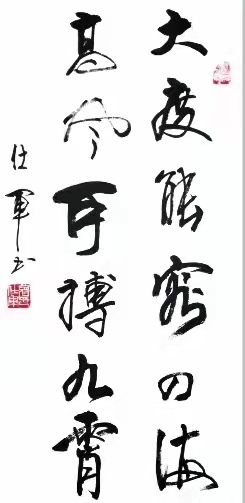 大度能容四海
高风可搏九霄
仕軍书